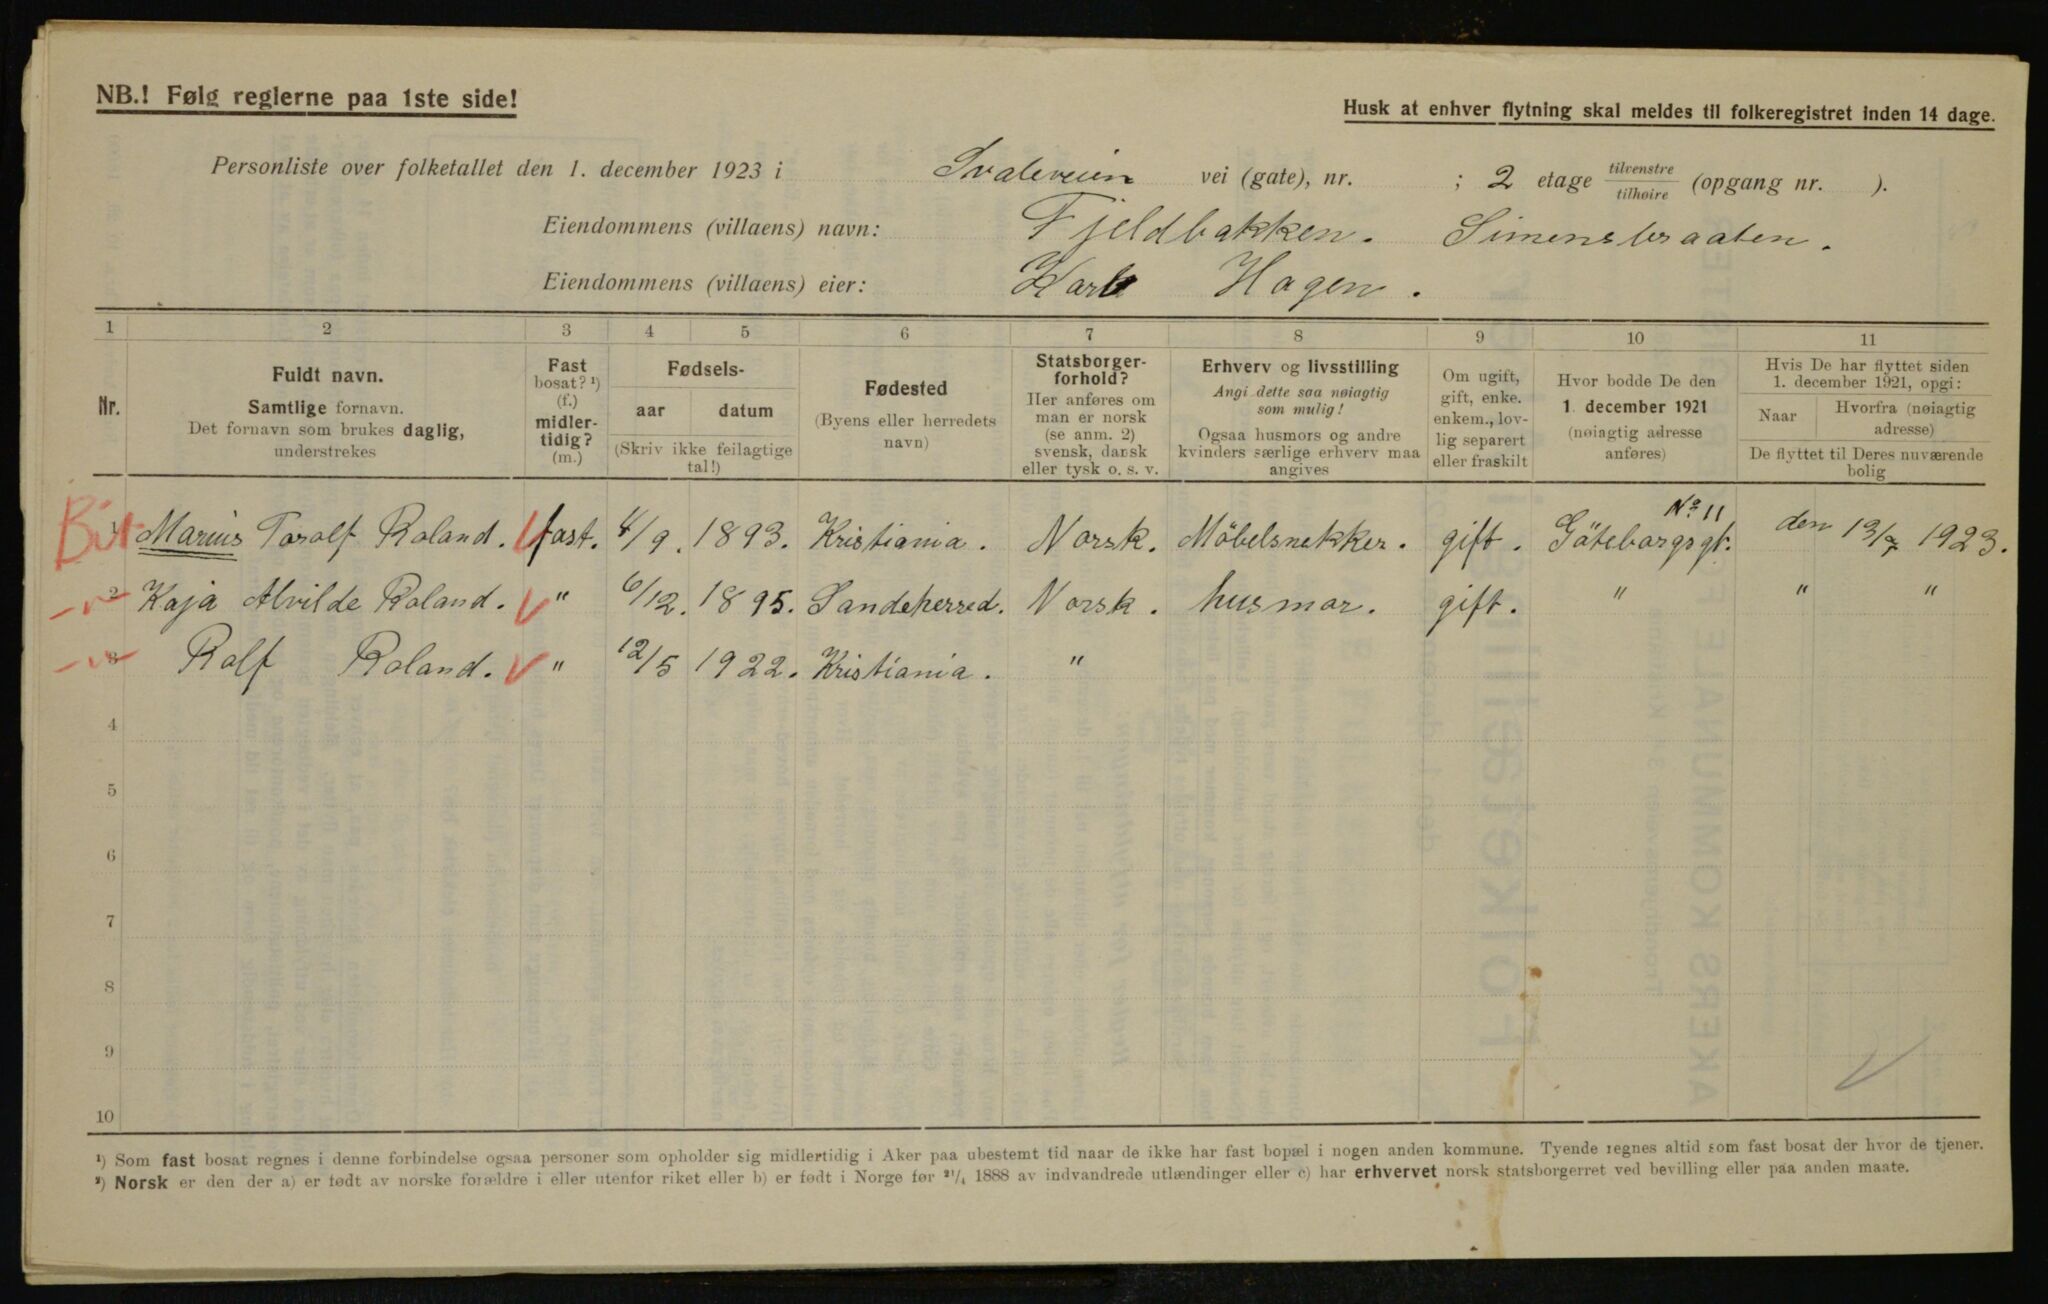 NB.! Følg reglerne paa 1ste side!
Husk at enhver flytning skal meldes til folkeregistret inden 14 dage.
Personliste over folketallet den 1. december 1923 i Svaleveien vei (gate), nr. ; 2 etage tilvenstre/tilhøire (opgang nr. ).
Eiendommens (villaens) navn: Fjeldbakken. Simensbraaten.
Eiendommens (villaens) eier: Karl Hagen.
1 2 3 4 5 6 7 8 9 10 11
Nr.
Fuldt navn.
Samtlige fornavn.
Det fornavn som brukes daglig,
understrekes
Fast
bosat? ¹)
(f.)
midler-
tidig?
(m.)
Fødsels-
aar datum
(Skriv ikke feilagtige
tal!)
Fødested
(Byens eller herredets
navn)
Statsborger-
forhold?
Her anføres om
man er norsk
(se anm. 2)
svensk, dansk
eller tysk o. s. v.
Erhverv og livsstilling
Angi dette saa nøiagtig
som mulig!
Ogsaa husmors og andre
kvinders særlige erhverv maa
angives
Om ugift,
gift, enke.
enkem., lov-
lig separert
eller fraskilt
Hvor bodde De den
1. december 1921
(nøiagtig adresse
anføres)
Hvis De har flyttet siden
1. december 1921, opgi:
Naar Hvorfra (nøiagtig
adresse)
De flyttet til Deres nuværende
bolig
No 11
1 Marius Toralf Roland. fast. 4/9. 1893. Kristiania. Norsk. Möbelsnekker. gift. Göteborgsgt. den 13/7 1923.
2 Kaja Alvilde Roland. " 6/12. 1895. Sandeherred. Norsk. husmor. gift. " " "
3 Rolf Roland. " 12/5 1922. Kristiania. "
4
5
6
7
8
9
10
¹) Som fast bosat regnes i denne forbindelse ogsaa personer som opholder sig midlertidig i Aker paa ubestemt tid naar de ikke har fast bopæl i nogen anden kommune. Tyende regnes altid som fast bosat der hvor de tjener.
²) Norsk er den der a) er født av norske forældre i eller utenfor riket eller b) er født i Norge før ²¹/₄ 1888 av indvandrede utlændinger eller c) har erhvervet norsk statsborgerret ved bevilling eller paa anden maate.